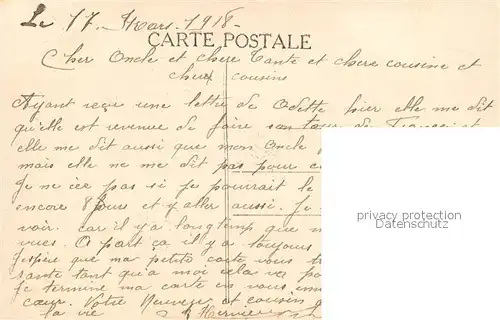 Le 17. Mars. 1918-
CARTE POSTALE
Cher Oncle et chere Tante et chere cousine et
cher cousins
Ayant reçu une lettre de Odette hier elle me dit
qu'elle est revenue de faire son tour de
elle me dit aussi que mon Oncle
mais elle ne me dit pas pour
Je ne pas si je pourrait le
encore 8 jours et y aller aussi. Je
voir. car il y a longtemp que
vues. A part ça il y a toujours
J'espère que ma petite carte vous
sante tant qu'a moi cela va
Je termine ma carte en vous
cœur. Votre Neuveu et cousin
la vie
privacy protection
Datenschutz